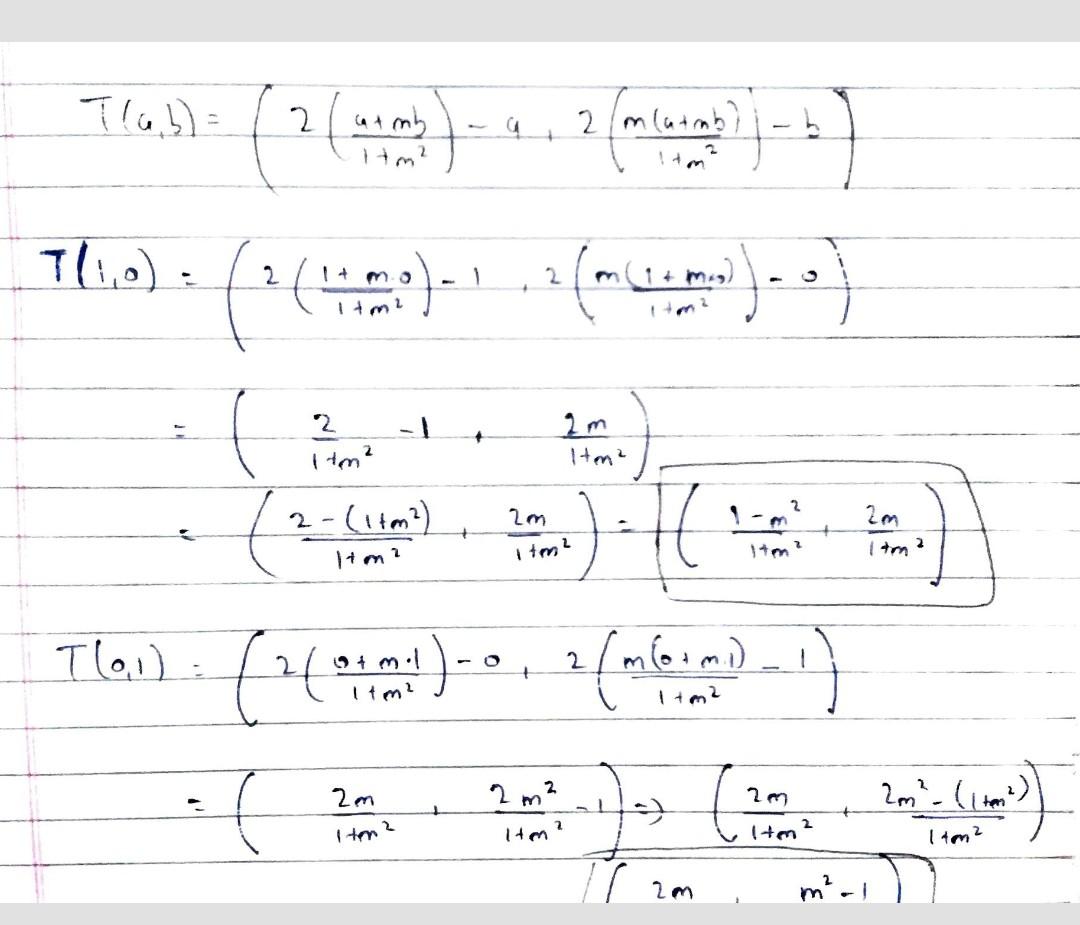 T(a,b) = ( 2 ( (a+mb)/(1+m²) ) - a , 2 ( m(a+mb)/(1+m²) ) - b )
T(1,0) = ( 2 ( (1+m.0)/(1+m²) ) - 1 , 2 ( m(1+m.0)/(1+m²) ) - 0 )
= ( 2/(1+m²) - 1 , 2m/(1+m²) )
= ( (2-(1+m²))/(1+m²) , 2m/(1+m²) ) = ( (1-m²)/(1+m²) , 2m/(1+m²) )
T(0,1) = ( 2 ( (0+m.1)/(1+m²) ) - 0 , 2 ( m(0+m.1)/(1+m²) - 1 )
= ( 2m/(1+m²) , 2m²/(1+m²) - 1 ) => ( 2m/(1+m²) , (2m²-(1+m²))/(1+m²) )
( 2m , m²-1 )